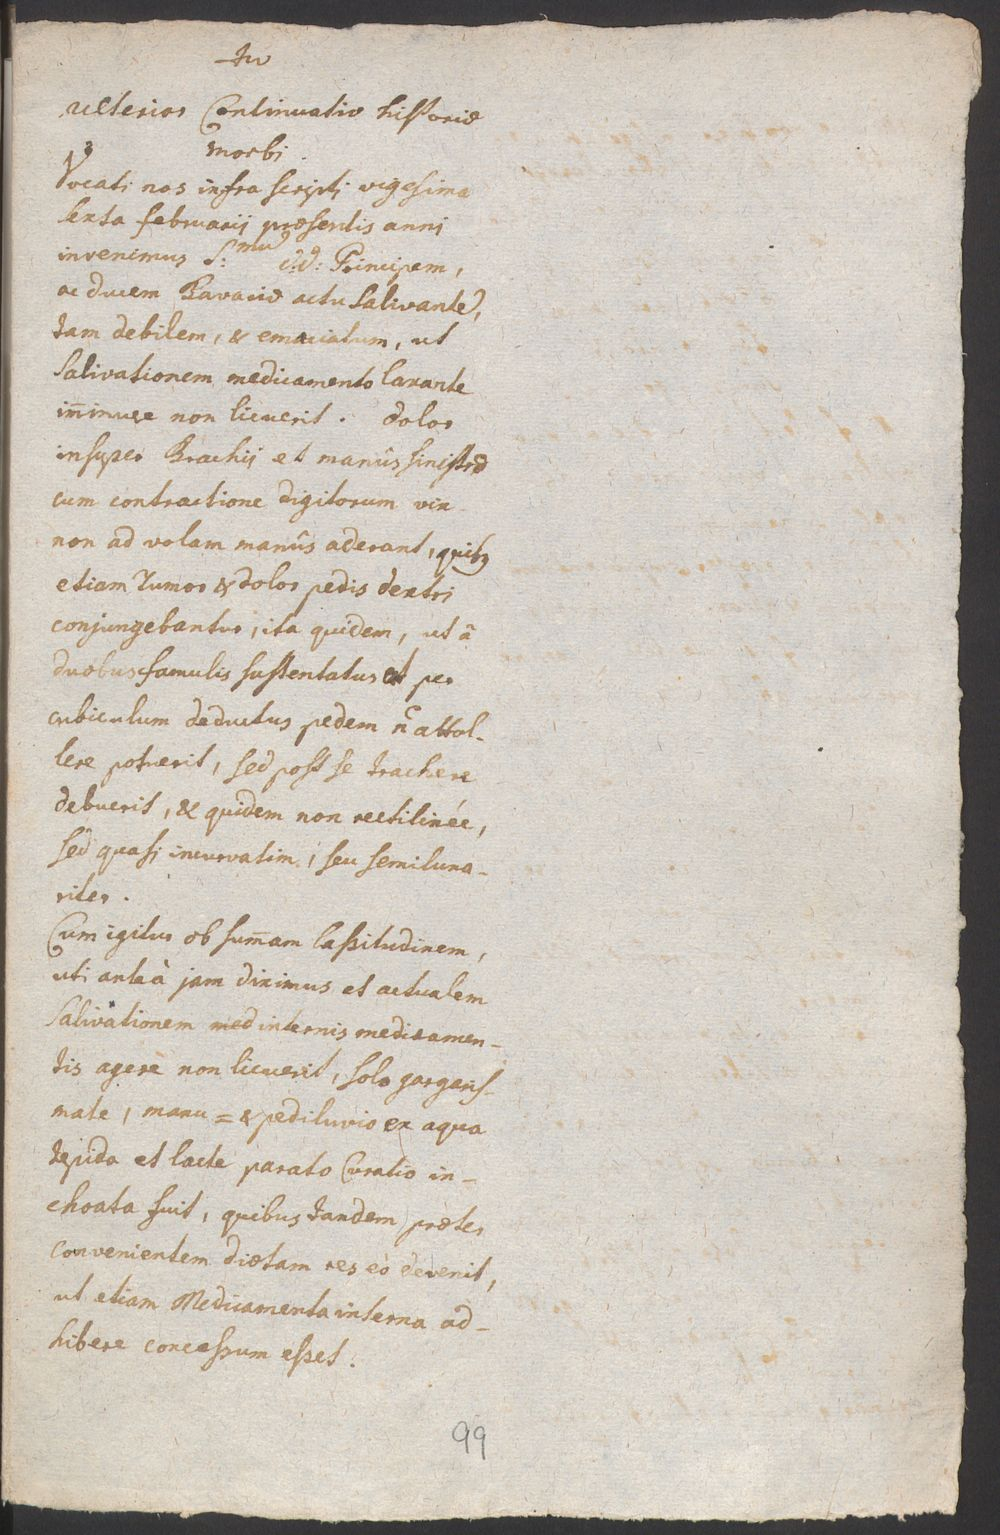 ulterior Continuatio historiæ
morbi.
Vocati nos infra scripti vigesima
sexta februarij præsentis anni
invenimus S:mū d:d: Principem,
ac ducem Bavariæ actu salivante,
tam debilem, & emaciatum, ut
salivationem medicamento laxante
im̄inuere non licuerit. dolor
insuper Brachij et manûs sinistræ
cum contractione digitorum vix
non ad volam manûs aderant, quibus
etiam Tumor & dolor pedis dextri
conjungebantur, ita quidem, ut â
duobus famulis sustentatus et per
cubiculum deductus pedem n̄ attol-
lere potuerit, sed post se trachere
debuerit, & quidem non rectilineé,
sed quasi incurvatim, seu semiluna-
riter.
Cum igitur ob sum̄am lassitudinem,
uti anteà jam diximus et actualem
salivationem med internis medicamen-
tis agere non licuerit, solo gargaris-
mate, manu = & pediluvio ex aqua
tepida et lacte parato Curatio in-
choata fuit, quibus tandem præter
convenientem diætam res eò devenit,
ut etiam Medicamenta interna ad-
hibere concessum esset.
99